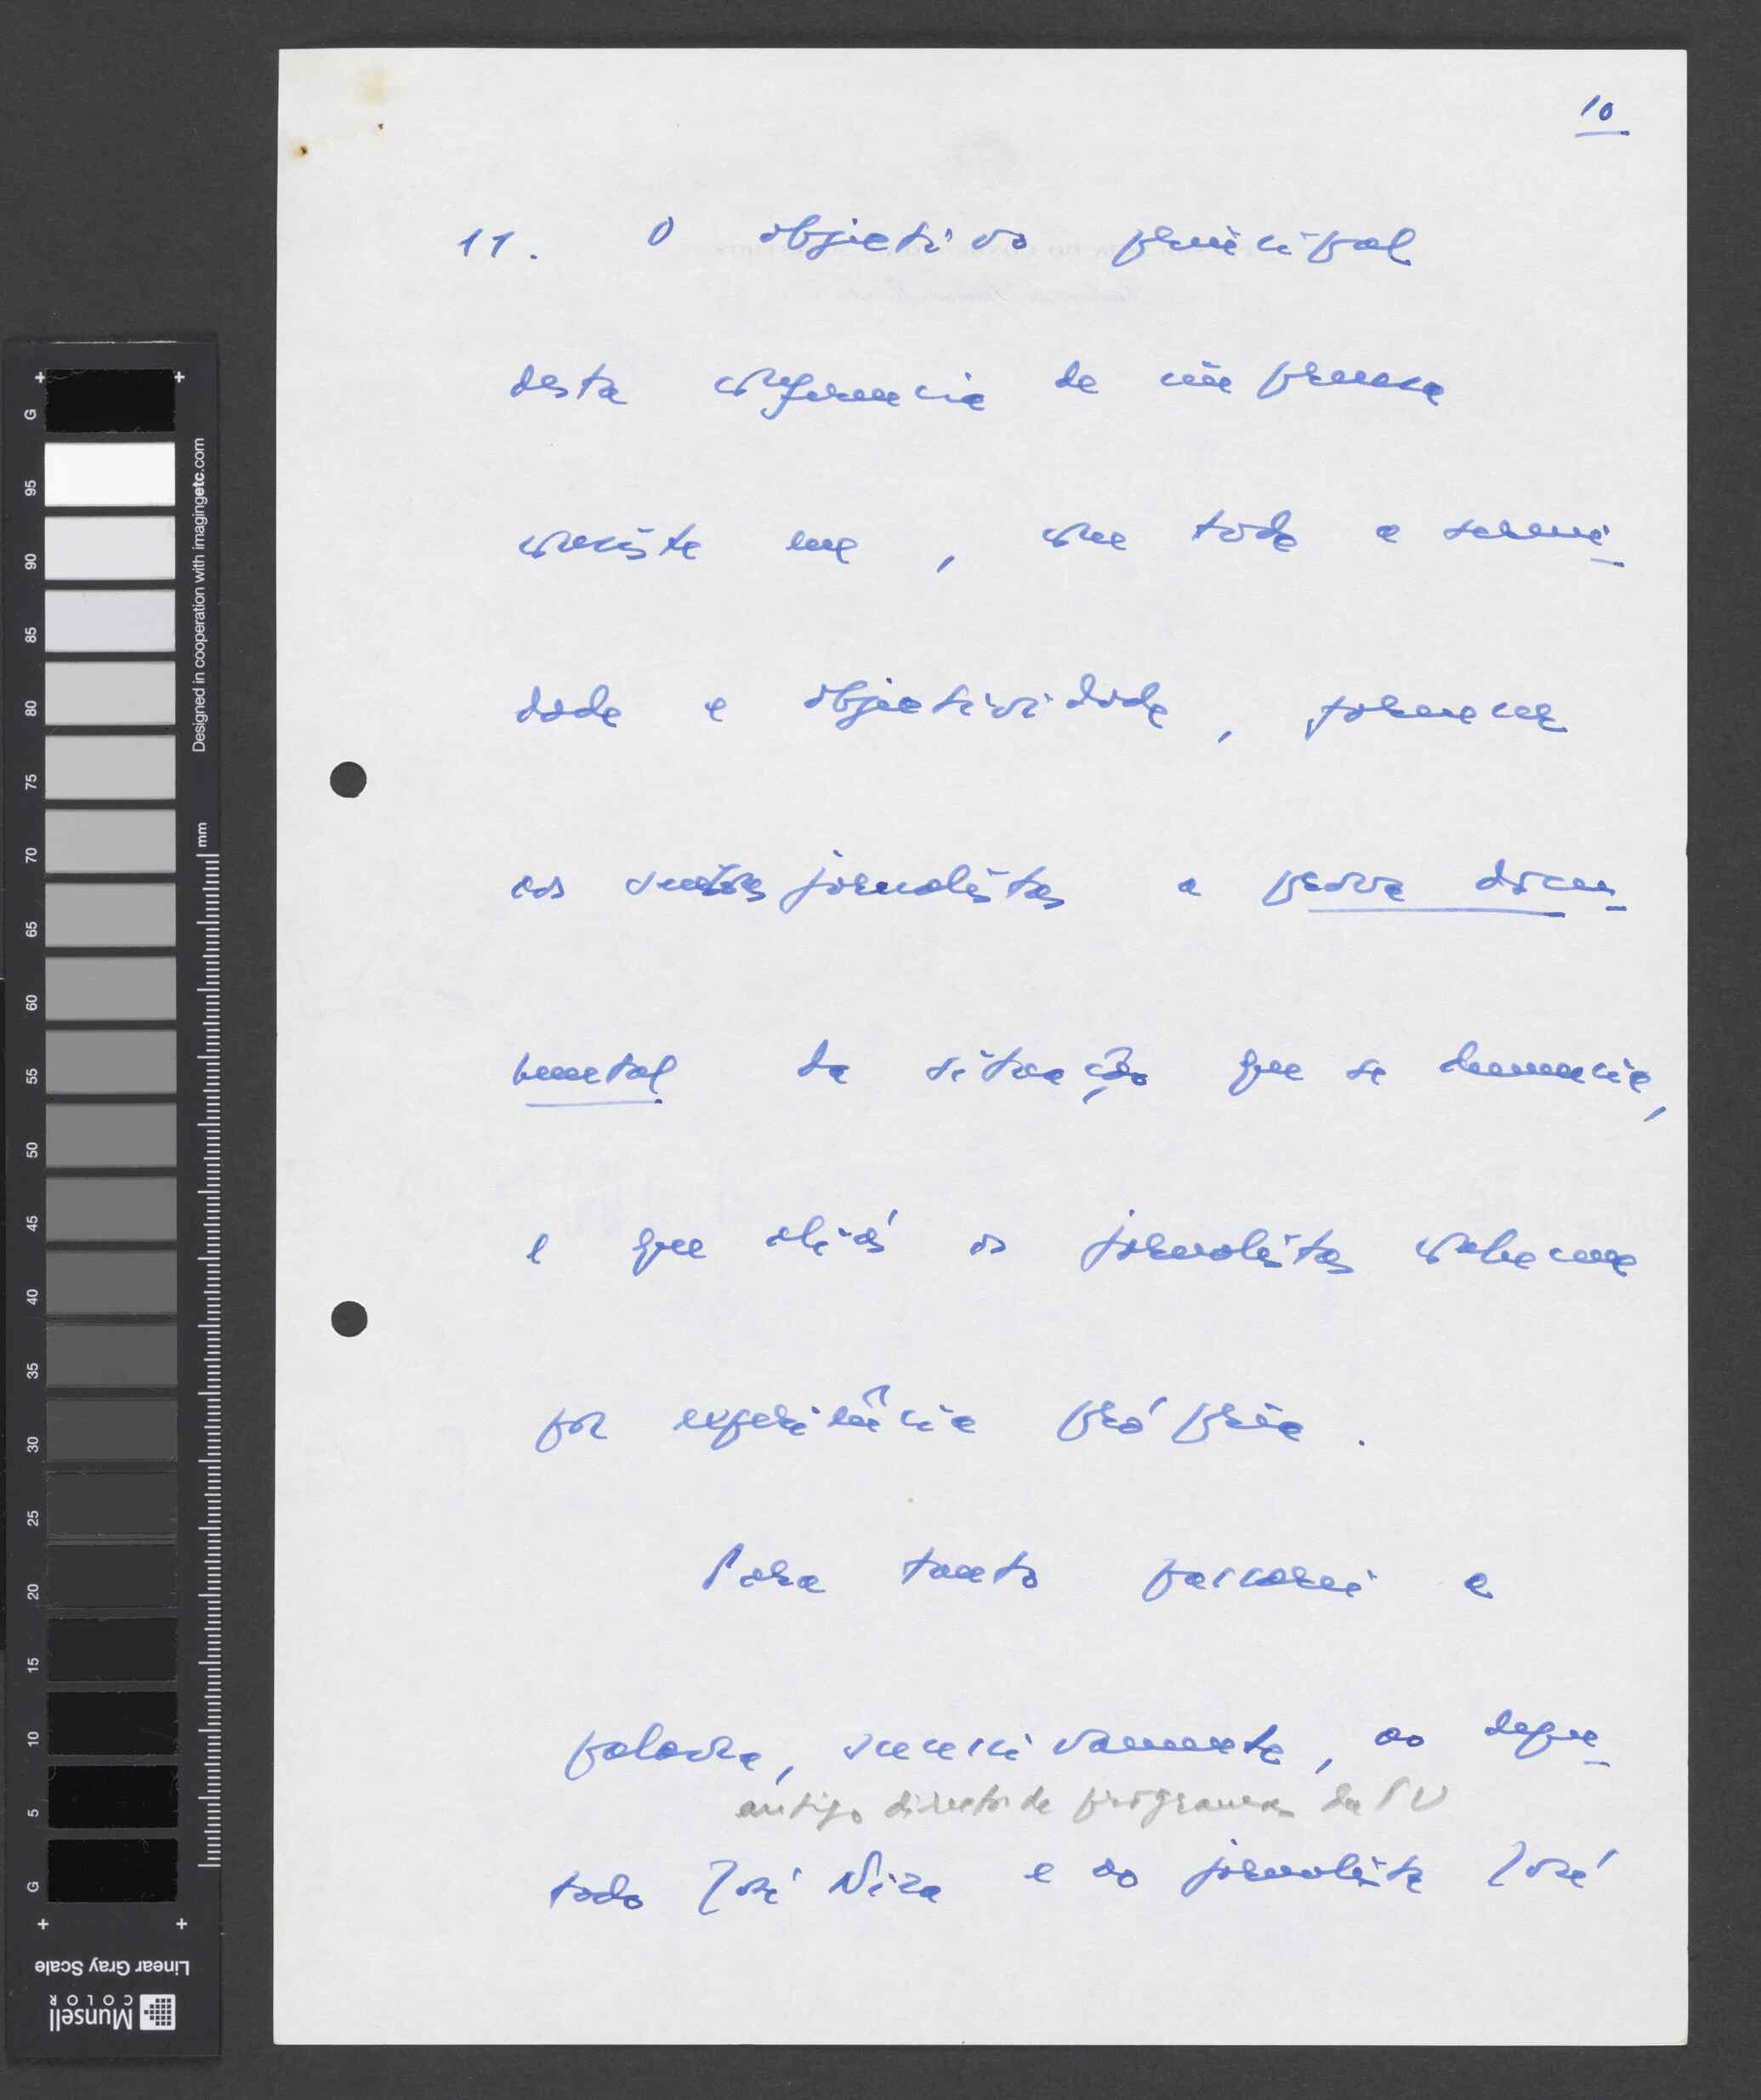 10
11. O objectivo principal
desta conferencia de imprensa
consiste em, com toda a sereni-
dade e objectividade, fornecer
aos senhores jornalistas a prova docu-
mental da situação que se denuncia,
e que aliás os jornalistas conhecem
por experiência própria.
Para tanto passarei a
palavra, sucessivamente, ao depu-
antigo director de programas da TV
tado José Niza e ao jornalista José
G
95
90
85
80
75
70
65
60
55
50
45
40
35
30
25
20
15
10
5
G
Designed in cooperation with imagingetc.com
mm
Linear Gray Scale
Munsell
COLOR